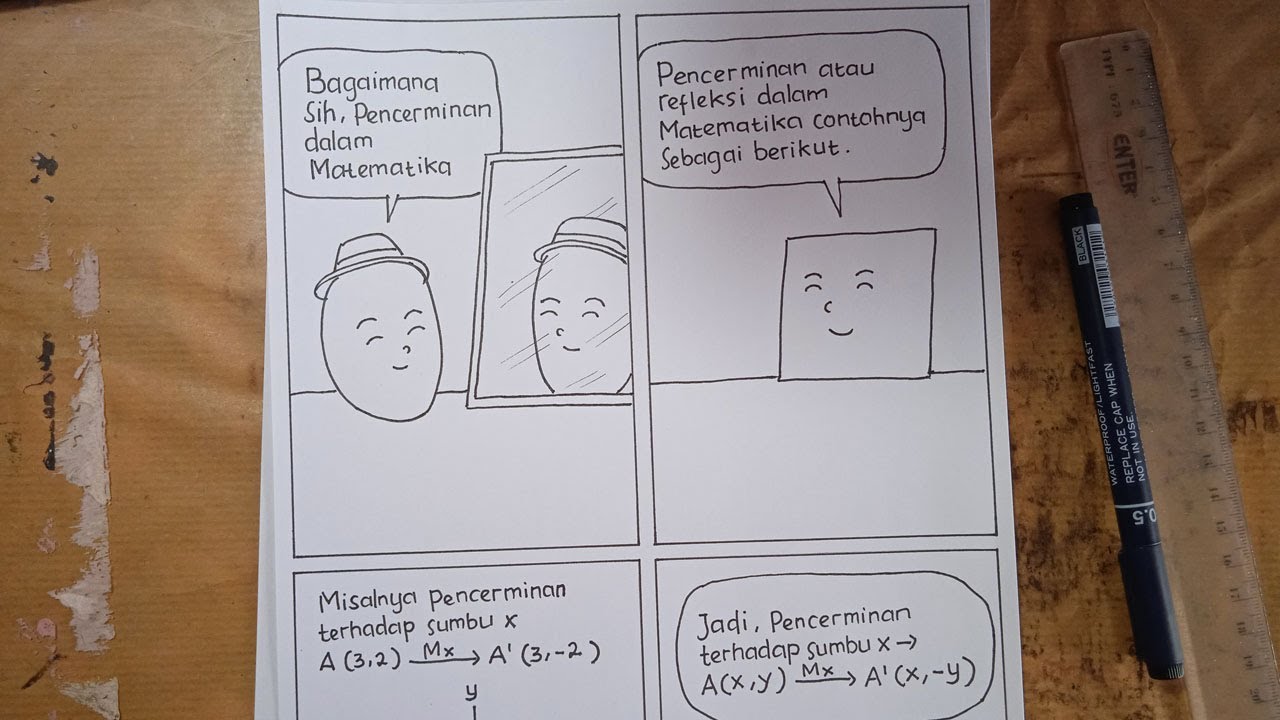 Bagaimana
Sih, Pencerminan
dalam
Matematika
Pencerminan atau
refleksi dalam
Matematika contohnya
Sebagai berikut.
Misalnya pencerminan
terhadap sumbu x
A (3,2) Mx→ A' (3,-2)
y
Jadi, Pencerminan
terhadap sumbu x →
A(x,y) Mx→ A'(x,-y)
ENTER
BLACK
WATERPROOF/LIGHTFAST
REPLACE CAP WHEN
NOT IN USE.
0.5